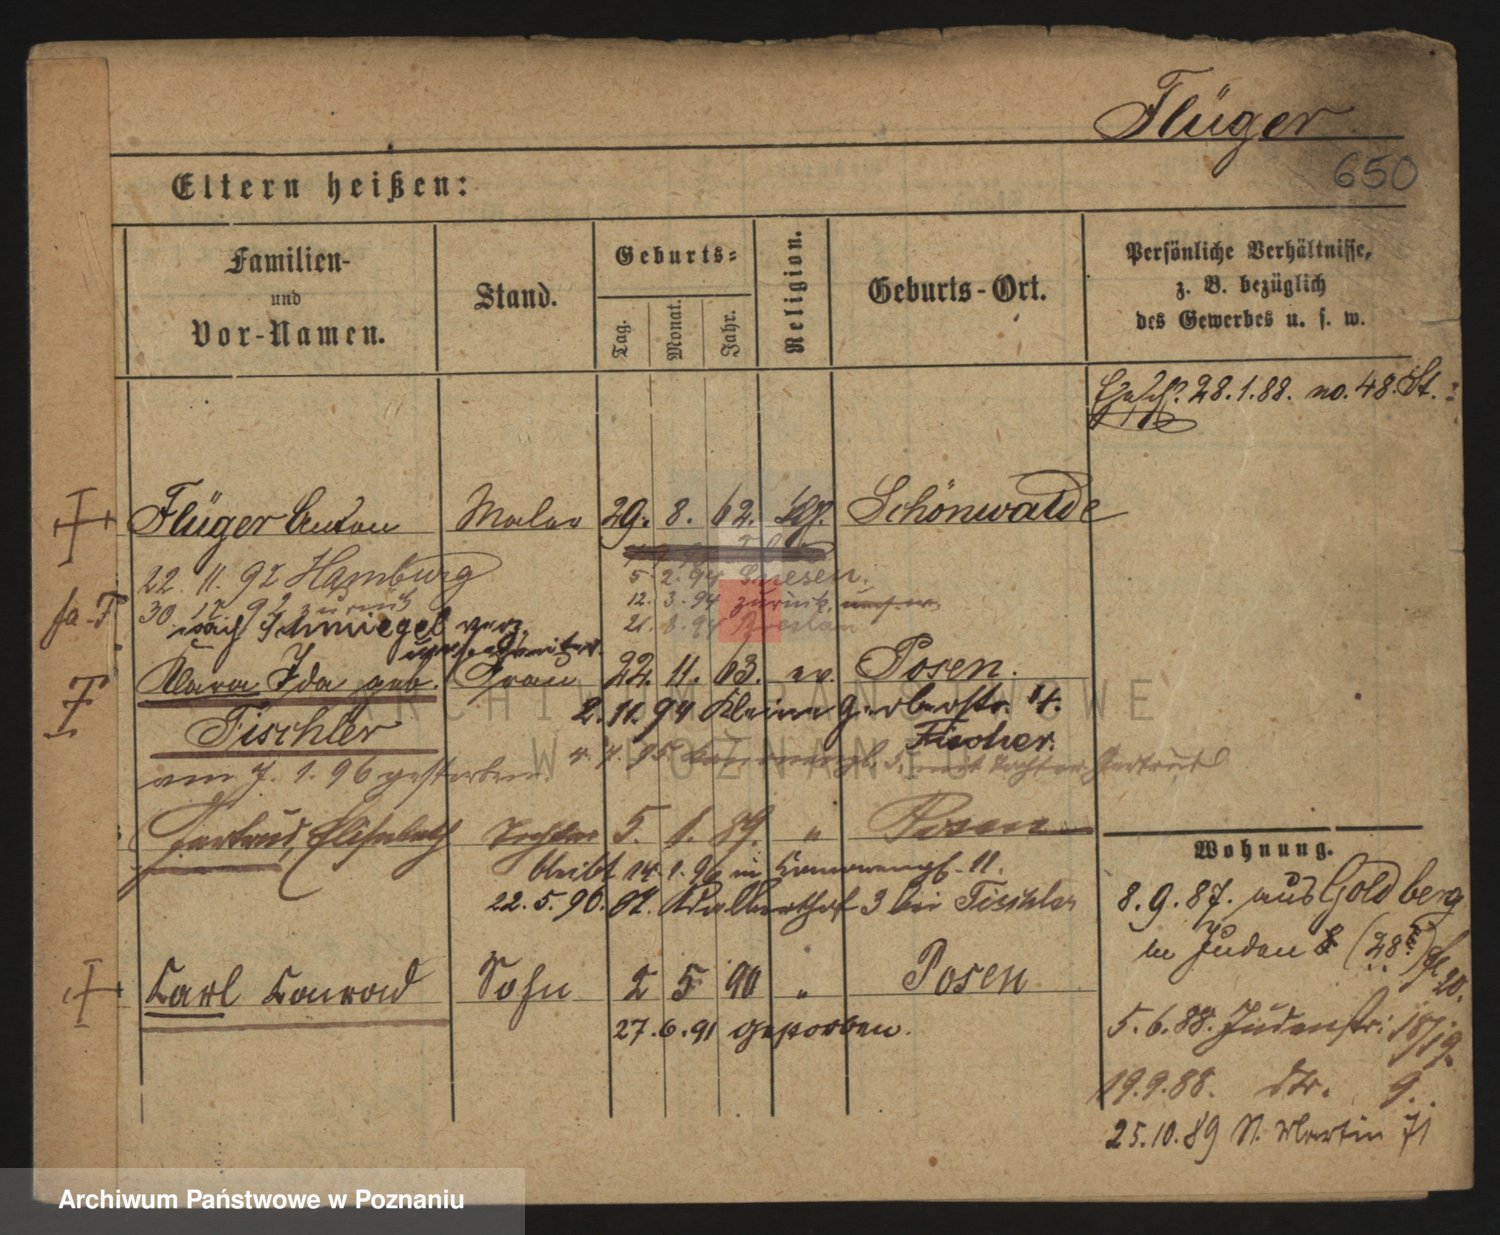 Flüger
650
Eltern heißen:
Familien-
und
Vor-Namen.
Stand.
Geburts-
Tag.
Monat.
Jahr.
Religion.
Geburts-Ort.
Persönliche Verhältnisse,
z. B. bezüglich
des Gewerbes u. s. w.
28.1.88. no. 48. St.
Flüger Anton Maler 29. 8. 62. Schönwalde
22. 11. 92 Hamburg
5. 2. 94 Gnesen.
30. 12 92 zurück
12. 3. 94 zurück
nach Schmiegel verz.
21. 8. 94 Breslau
Clara Ida geb. Frau 22. 11. 63. ev. Posen.
2. 11. 94 Kleine Gerberstr. 14.
Fischler
Fischer.
am 7. 1. 96 gestorben
4. 4. 95 mit Tochter Gertrud
Gertrud, Elisabeth Tochter 5. 1. 89. " Posen
bleibt 14. 1. 96 in 11.
22. 5. 96. 3 bei Fischler
Carl Conrad Sohn 2 5 90 " Posen
27. 6. 91 gestorben.
Wohnung.
8. 9. 87. aus Goldberg
in Juden
5. 6. 88. Judenstr:
19. 9. 88. dto. 9.
25. 10. 89 St. Martin 71
ARCHIWUM PAŃSTWOWE
W POZNANIU
Archiwum Państwowe w Poznaniu